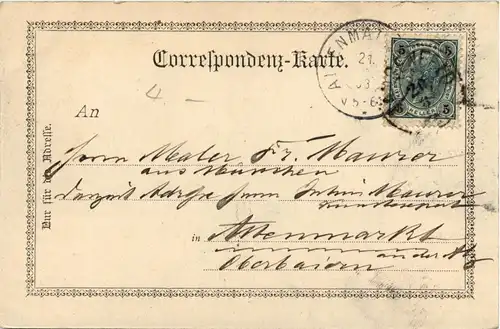 Correspondenz-Karte.
An
Nur für die Adresse.
Herrn Maler Fr. Maurer
aus München
derzeit Adresse Herrn Maurer
in Altenmarkt
an der Alz
Oberbaiern
4. –
ALTENMA
21
03
V 5-6
5 5